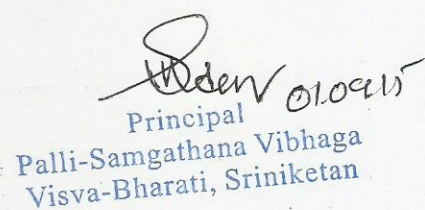 01.09.15
Principal
Palli-Samgathana Vibhaga
Visva-Bharati, Sriniketan